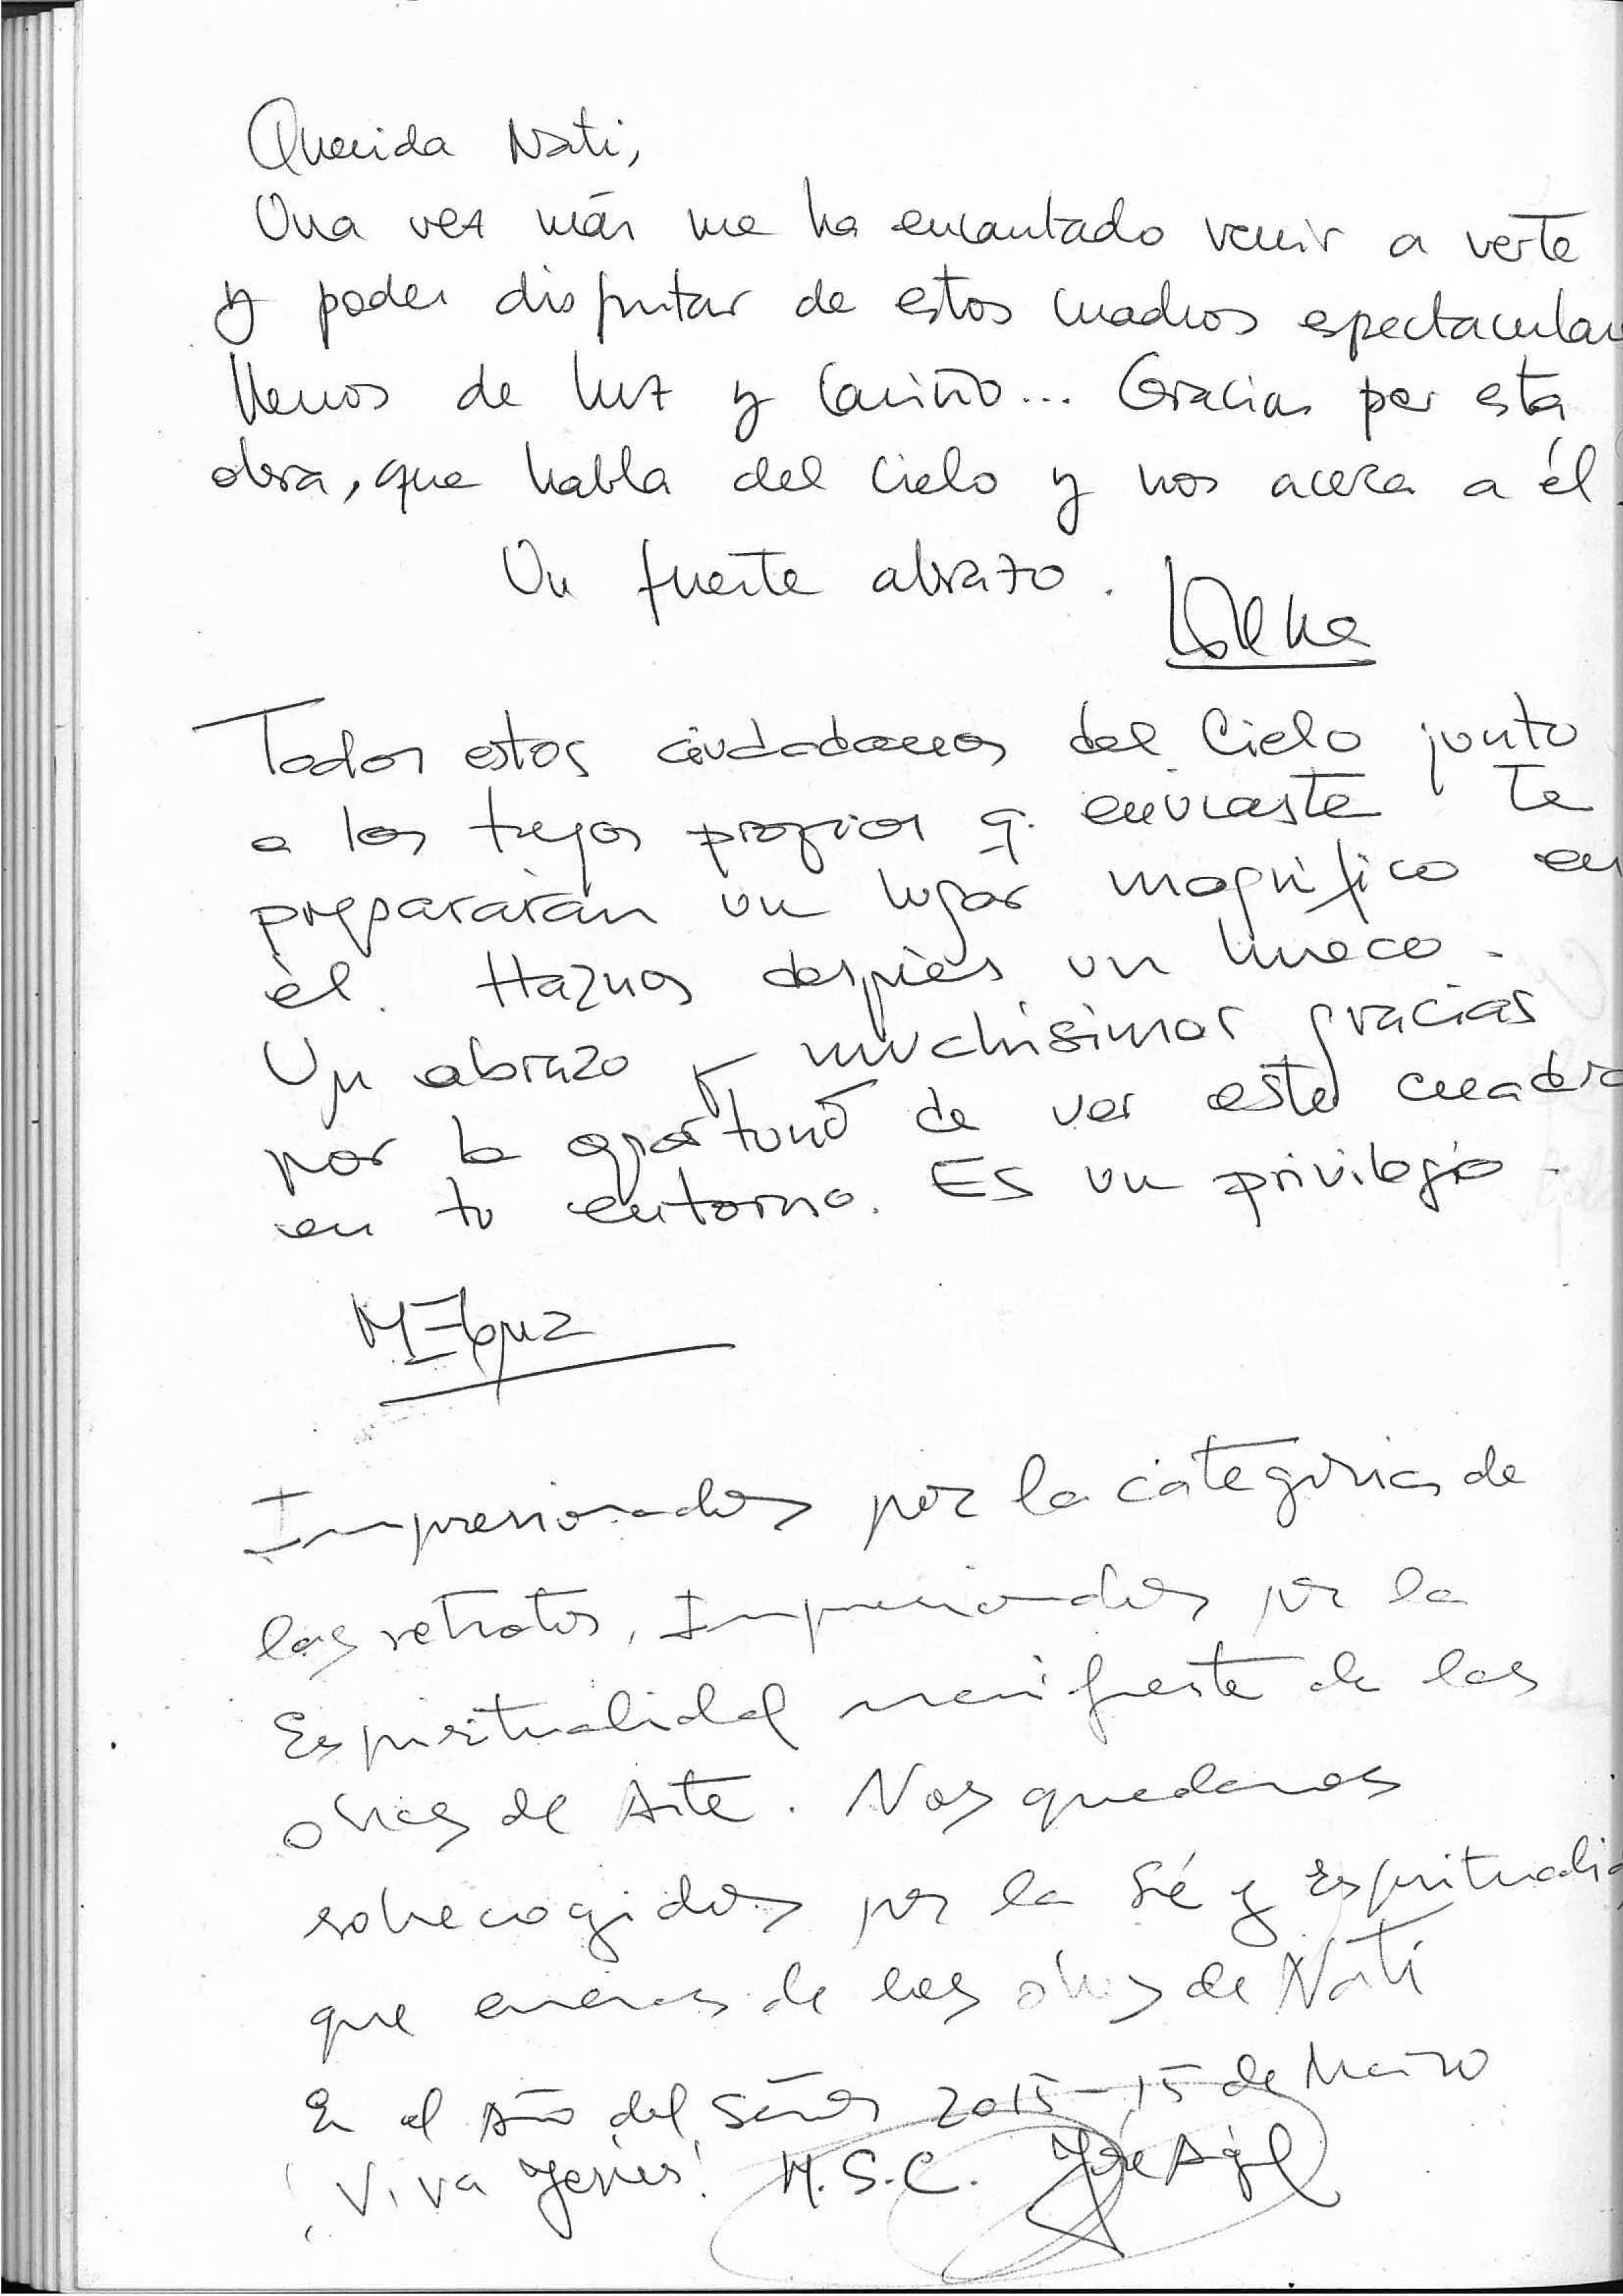 Querida Nati,
Una vez más me ha encantado venir a verte
y poder disfrutar de estos cuadros espectacular
llenos de luz y cariño... Gracias por esta
obra, que habla del cielo y nos acerca a él.
Un fuerte abrazo.
Todos estos ciudadanos del Cielo junto
a los tuyos propios q. enviaste te
prepararán un lugar magnífico en
él. Haznos después un hueco.
Un abrazo y muchísimas gracias
por la oportund de ver este cuadro
en tu entorno. Es un privilegio.
Impresionados por la categoria de
los retratos, Impresionados por la
Espiritualidad manifiesta de las
obras de Arte. Nos quedamos
sobrecogidos por la Fé y Espiritualid
que emana de las obras de Nati
En el Año del Señor 2015-15 de Marzo
¡Viva Jesús! M.S.C. José Agl